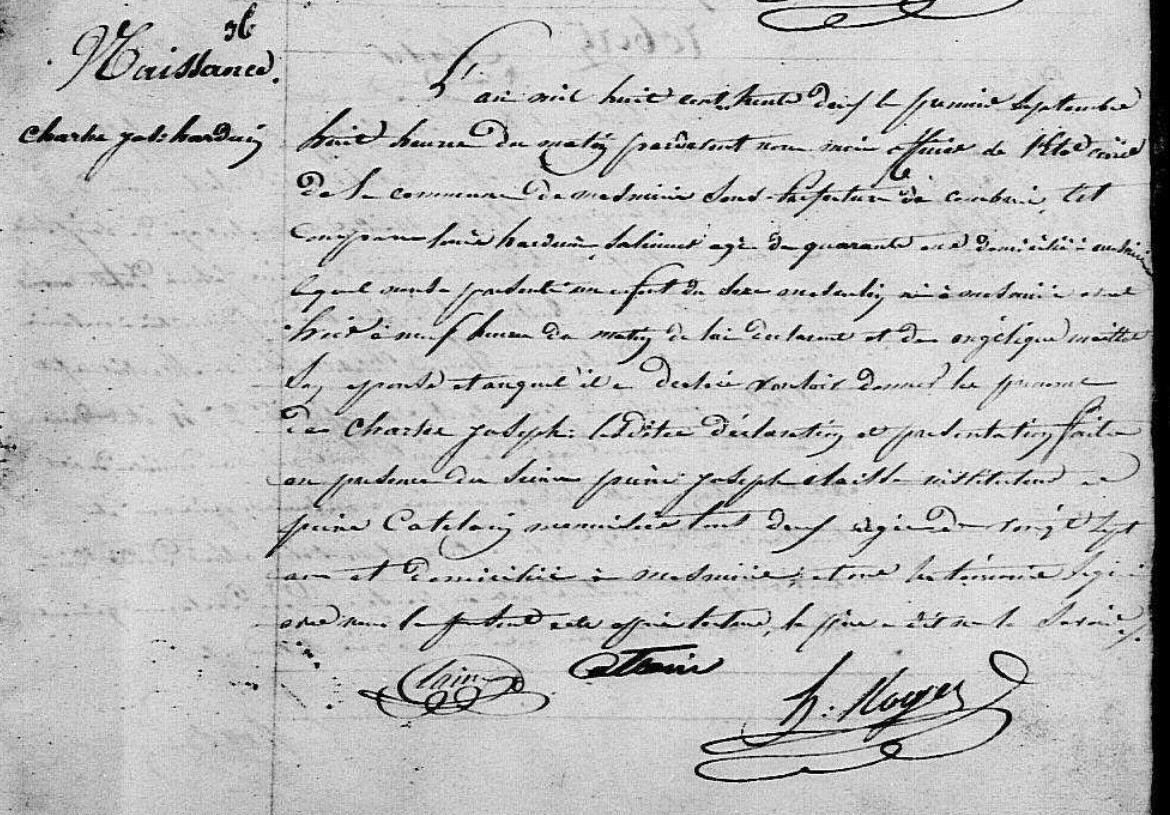 36
Naissance.
charles jos. harduin
L'an mil huit cent trente deux le premier Septembre
huit heures du matin pardevant nous maire officier de l'Etat civil
de la commune de masnieres Sous-Prefecture de cambrai, Est
comparu louis harduin, Salineur agé de quarante ans domicilié à masnieres
lequel nous a présenté un enfant du sexe masculin né à masnieres
huit à neuf heures du matin de lui declarant et de angélique
Son epouse et auquel il a declaré vouloir donner les prenoms
de Charles Joseph. lesdites déclaration et presentation faites
en presence des Sieurs pierre joseph claisse instituteur et
pierre Catelain menuisier tous deux agés de vingt Sept
ans et domiciliés à masnieres, et ont les témoins Signé
avec nous le present acte après lecture, le père a dit ne le Savoir.
Catelain
h. Noyer